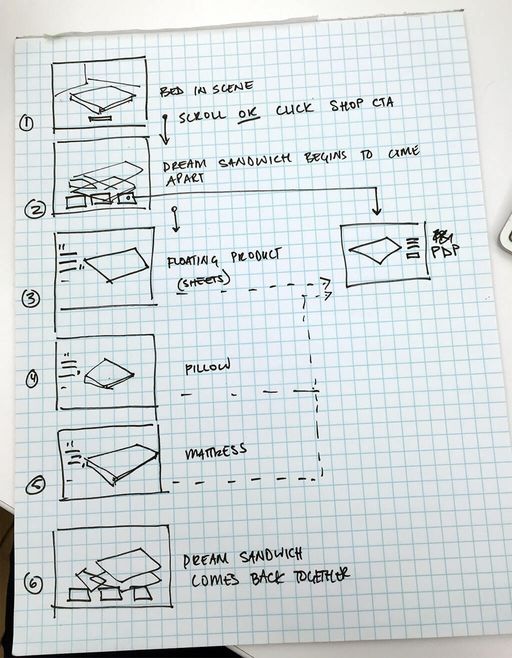 1
BED IN SCENE
SCROLL OR CLICK SHOP CTA
2
DREAM SANDWICH BEGINS TO COME
APART
3
FLOATING PRODUCT
(SHEETS)
PDP
4
PILLOW
5
MATTRESS
6
DREAM SANDWICH
COMES BACK TOGETHER